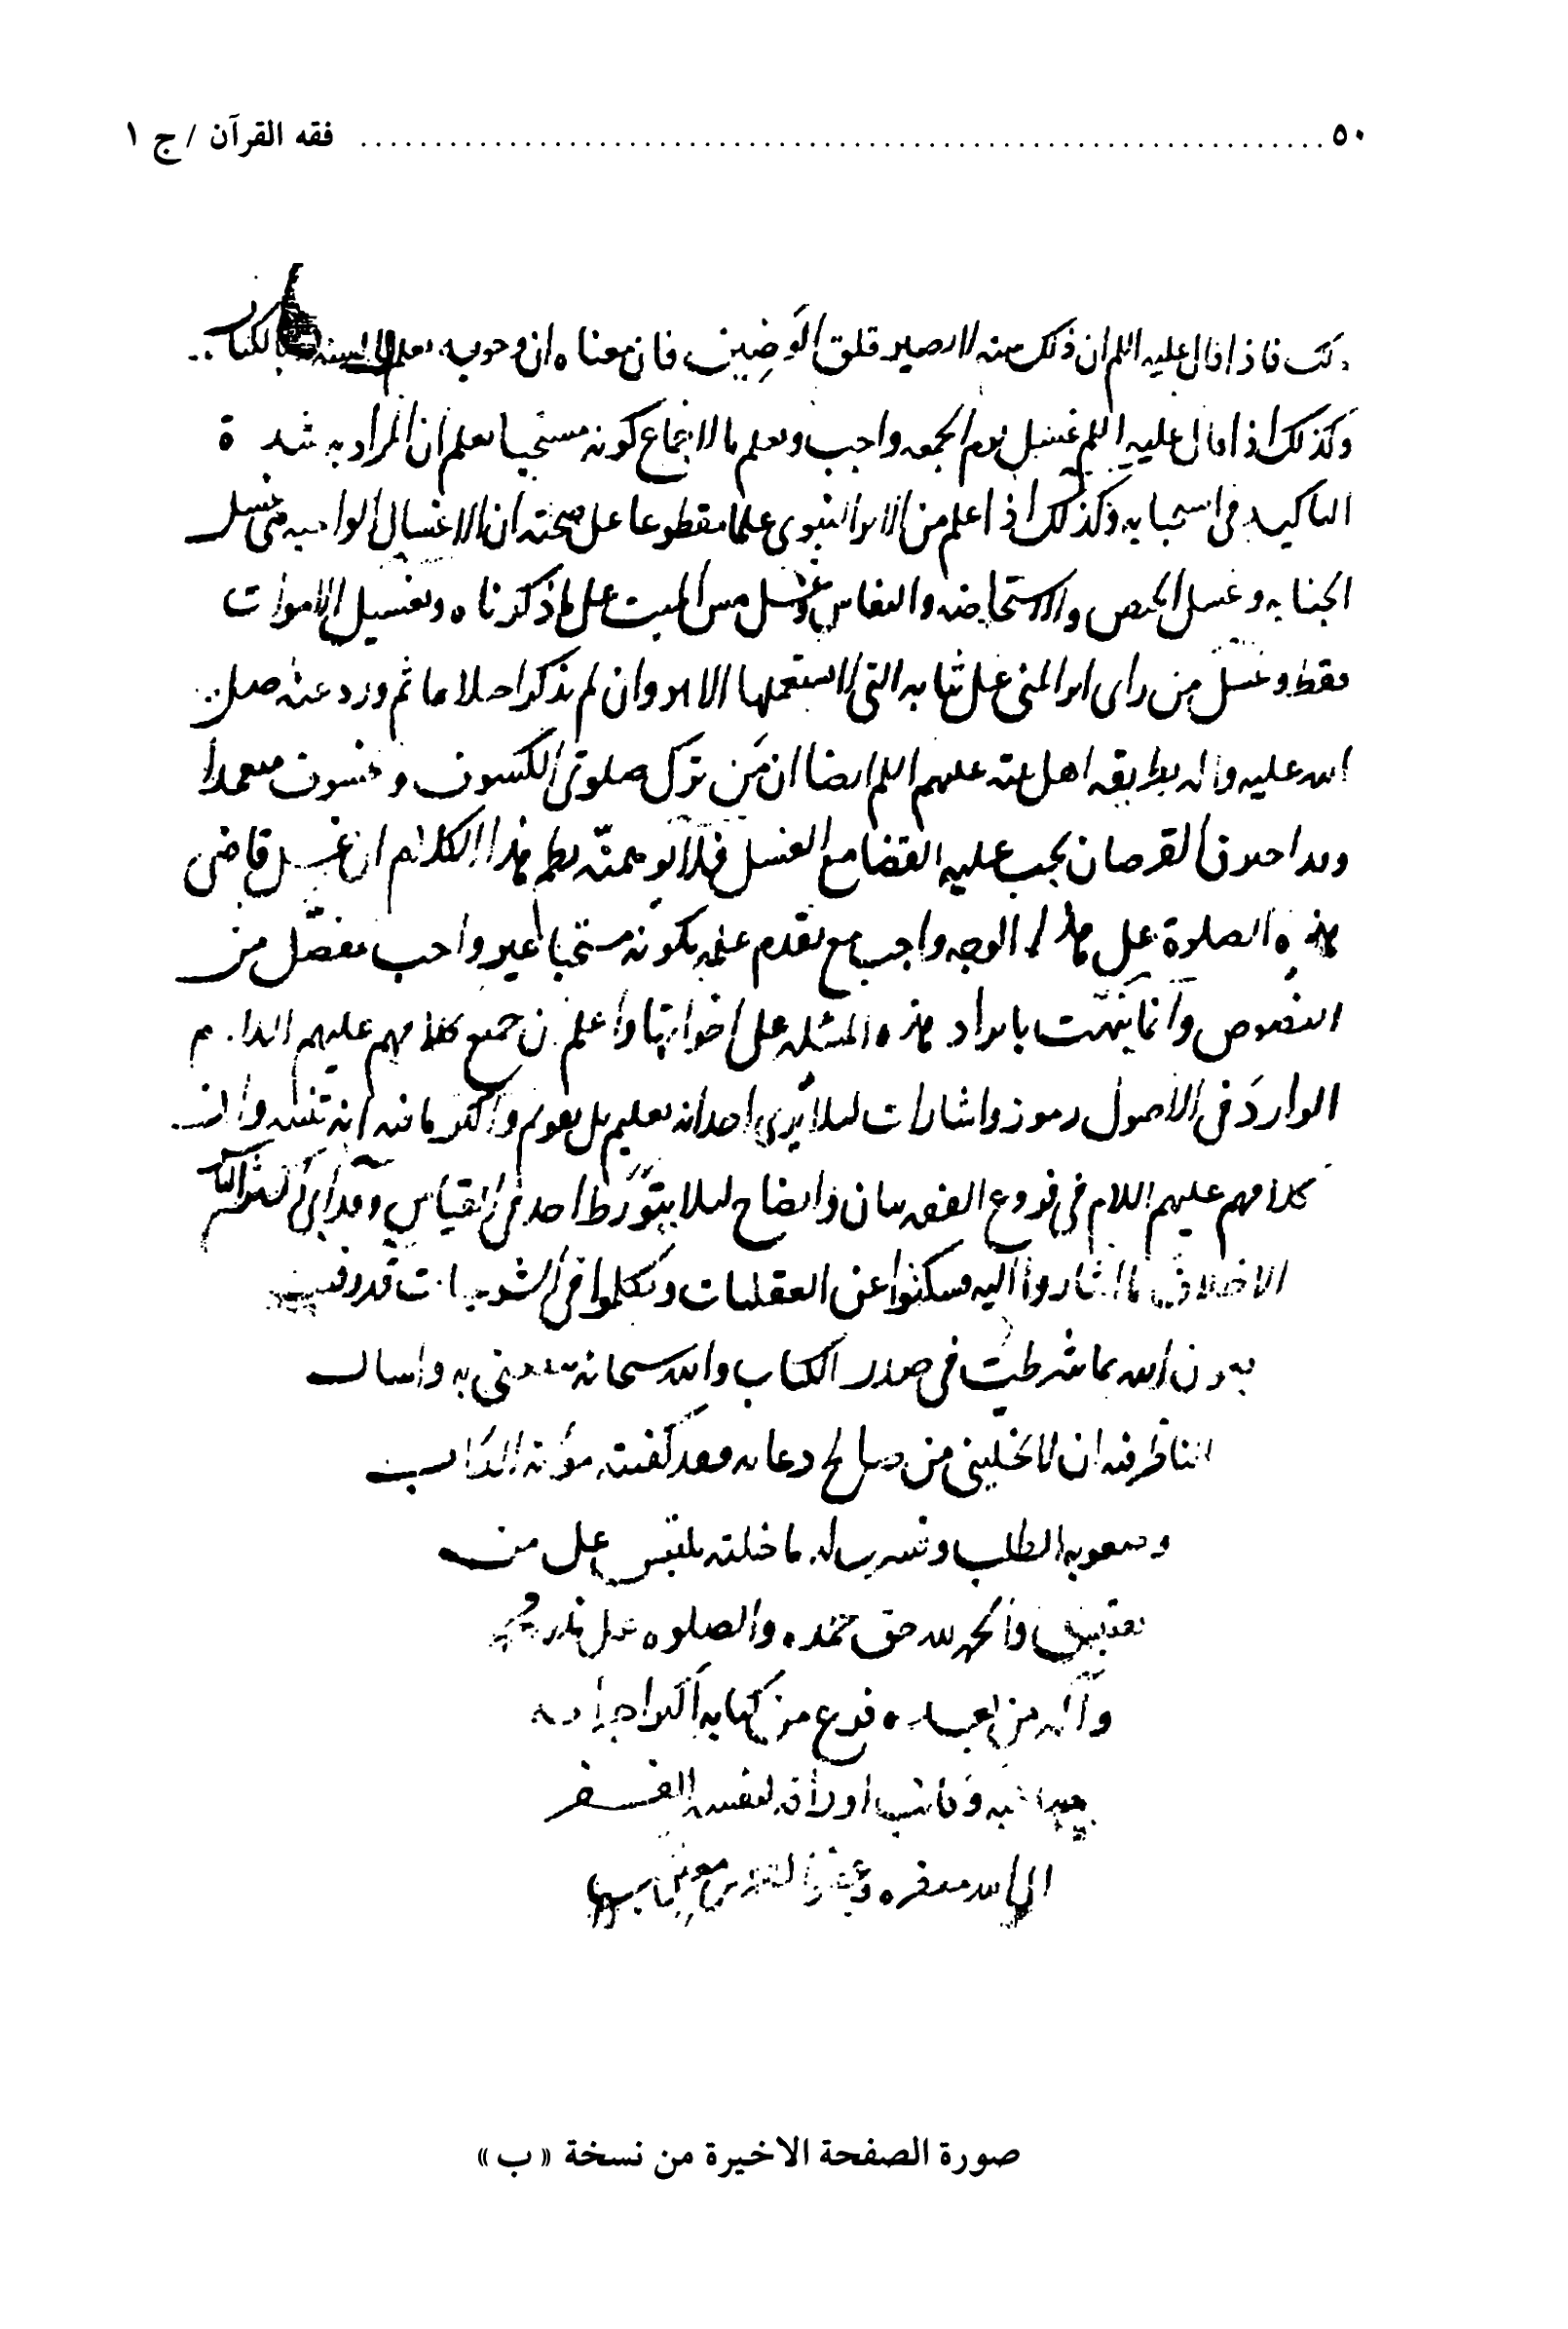 ٥٠ ........ فقه القرآن / ج ١
فاذا قال عليه السلم ان ذلك سنه لا يصير قلق الوضين فان معناه ان وجوبه يعلم بالسنه لا بالكتاب
وكذلك اذا قال عليه السلم غسل يوم الجمعه واجب ويعلم بالاجماع كونه مستحبا يعلم ان المراد به شدة
التاكيد في استحبابه وكذلك اذا علم من الامر النبوي علما مقطوعا على صحته ان الاغسال الواجبه هي غسل
الجنابه وغسل الحيض والاستحاضه والنفاس وغسل مس الميت على ما ذكرناه وتغسيل الاموات
فقط وغسل من راى اثر المني على ثيابه التي لا يستعملها الا هو وان لم يذكر احتلاما ثم ورد عنه صلى
الله عليه واله بطريقه اهل بيته عليهم السلم ايضا ان من ترك صلوتي الكسوف وخسوف متعمدا
وقد احترق القرصان يجب عليه القضا مع الغسل فلا يوهمنه بظم هذا الكلام ان غسل قاضي
هذه الصلوة على هذا الوجه واجب مع تقدم علمه بكونه مستحبا غير واجب مفصل من
النصوص وانما تيمنت بايراد هذه المسئله على اخواتها واعلم ان جميع كلامهم عليهم السلام
الوارد في الاصول رموز واشارات ليلا يرى احد انه تعليم بل يقوم واكثر ما فيه انه تنبيه وان
كلامهم عليهم السلام في فروع الفقه بيان وايضاح ليلا يتورط احد في القياس وقد ابى
الاختلاف ما اشاروا اليه وسكتوا عن العقليات وتكلموا في الشرعيات قد وفيت
بعون الله بما شرطت في صدر الكتاب والله سبحانه ينفعني به واسال
الناظر فيه ان لا يخليني من صالح دعايه فقد كفيته مؤنة الداب
وصعوبه الطلب ويسرت له ما خلته يلتبس على من
يقتبس والحمد لله حق حمده والصلوه على محمد
وآله من بعده فرغ من كتابه
وكاتب اوراقه لنفسه الفقير
الى الله
صورة الصفحة الاخيرة من نسخة «ب»